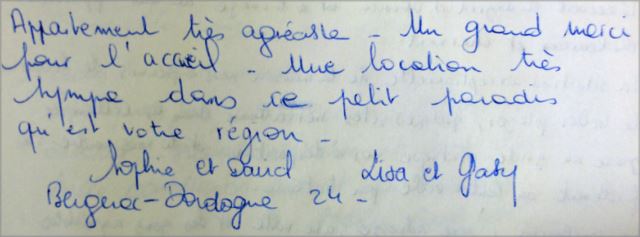 Appartement très agréable - Un grand merci
pour l'accueil - Une location très
sympa dans ce petit paradis
qu'est votre région -
Sophie et David Lisa et Gaby
Bergerac-Dordogne 24 -